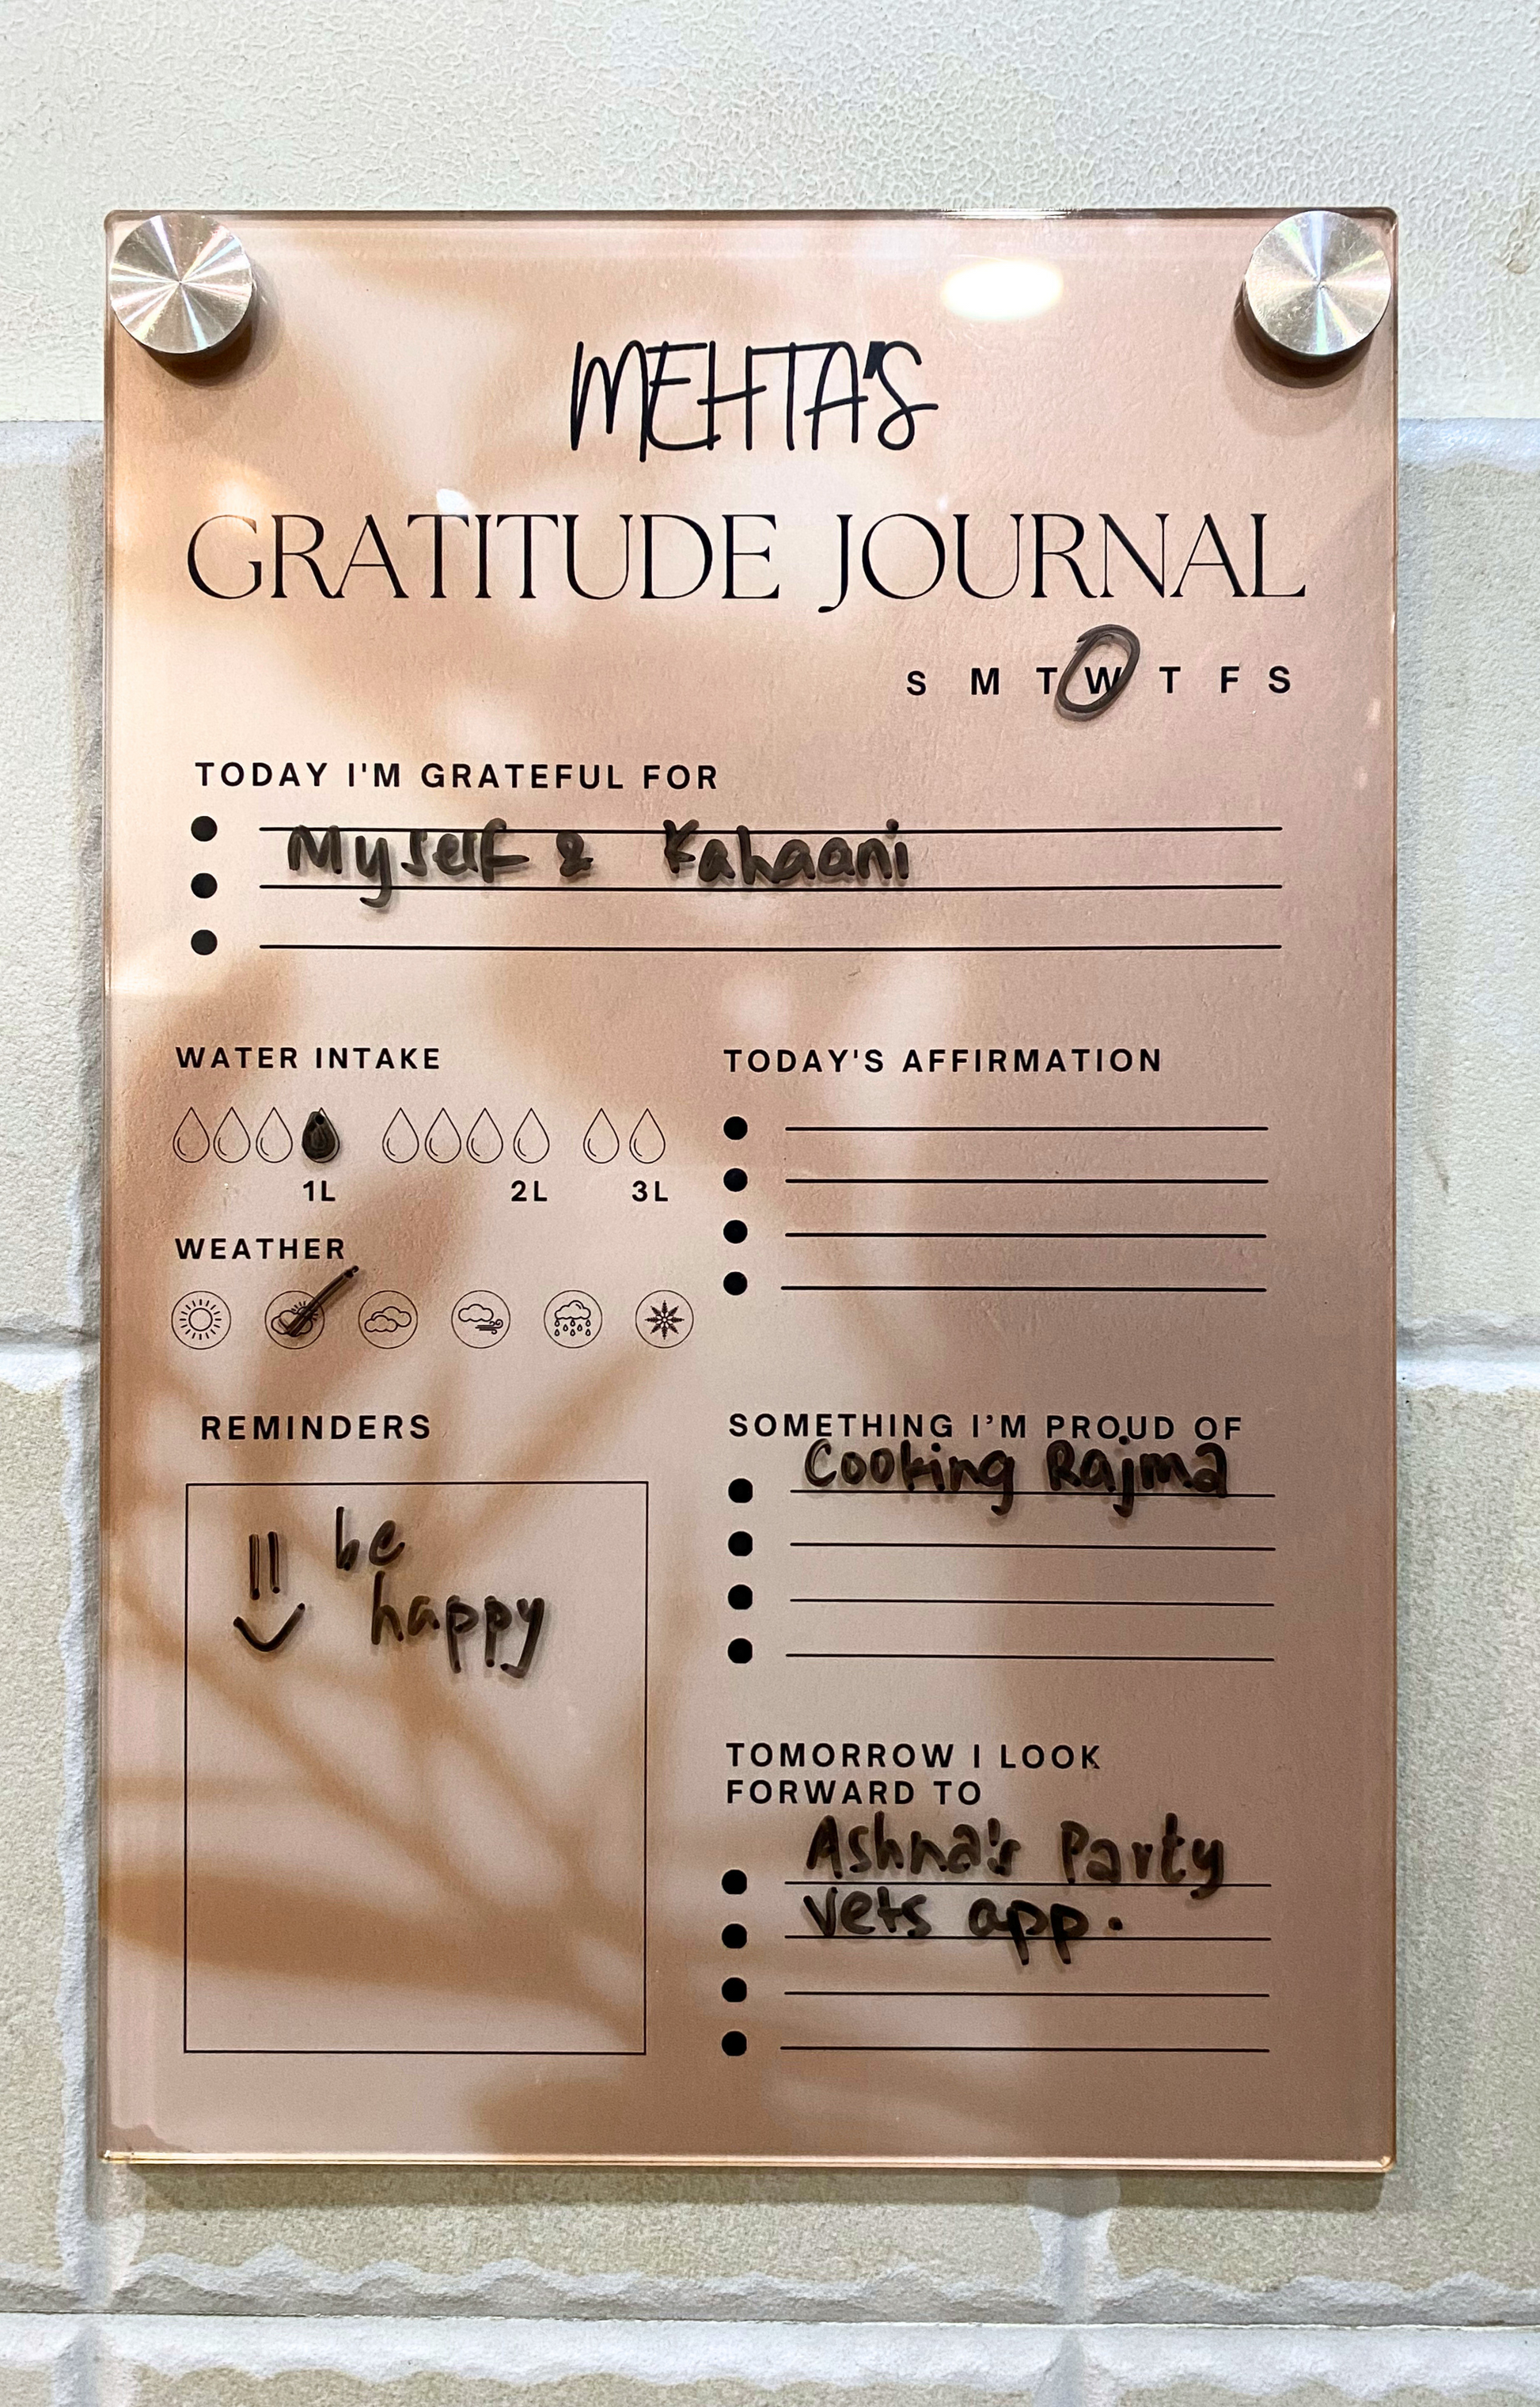 MEHTA'S
GRATITUDE JOURNAL
S M T W T F S
TODAY I'M GRATEFUL FOR
Myself & Kahaani
WATER INTAKE
1L 2L 3L
WEATHER
TODAY'S AFFIRMATION
REMINDERS
be
happy
SOMETHING I'M PROUD OF
Cooking Rajma
TOMORROW I LOOK
FORWARD TO
Ashna's Party
vets app.